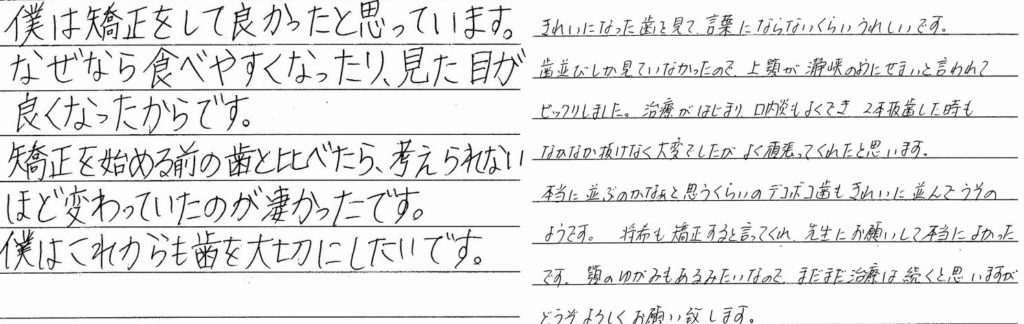 僕は矯正をして良かったと思っています。
なぜなら食べやすくなったり、見た目が
良くなったからです。
矯正を始める前の歯と比べたら、考えられない
ほど変わっていたのが凄かったです。
僕はこれからも歯を大切にしたいです。
きれいになった歯を見て、言葉にならないくらいうれしいです。
歯並びしか見ていなかったので、上顎が瀞峡のようにせまいと言われて
ビックリしました。治療がはじまり口内炎もよくでき 2本抜歯した時も
なかなか抜けなく大変でしたがよく頑張ってくれたと思います。
本当に並ぶのかなぁと思うくらいのデコボコ歯もきれいに並んでうその
ようです。 将希も矯正すると言ってくれ 先生にお願いして本当によかった
です。顎のゆがみもあるみたいなので、まだまだ治療は続くと思いますが
どうぞよろしくお願い致します。